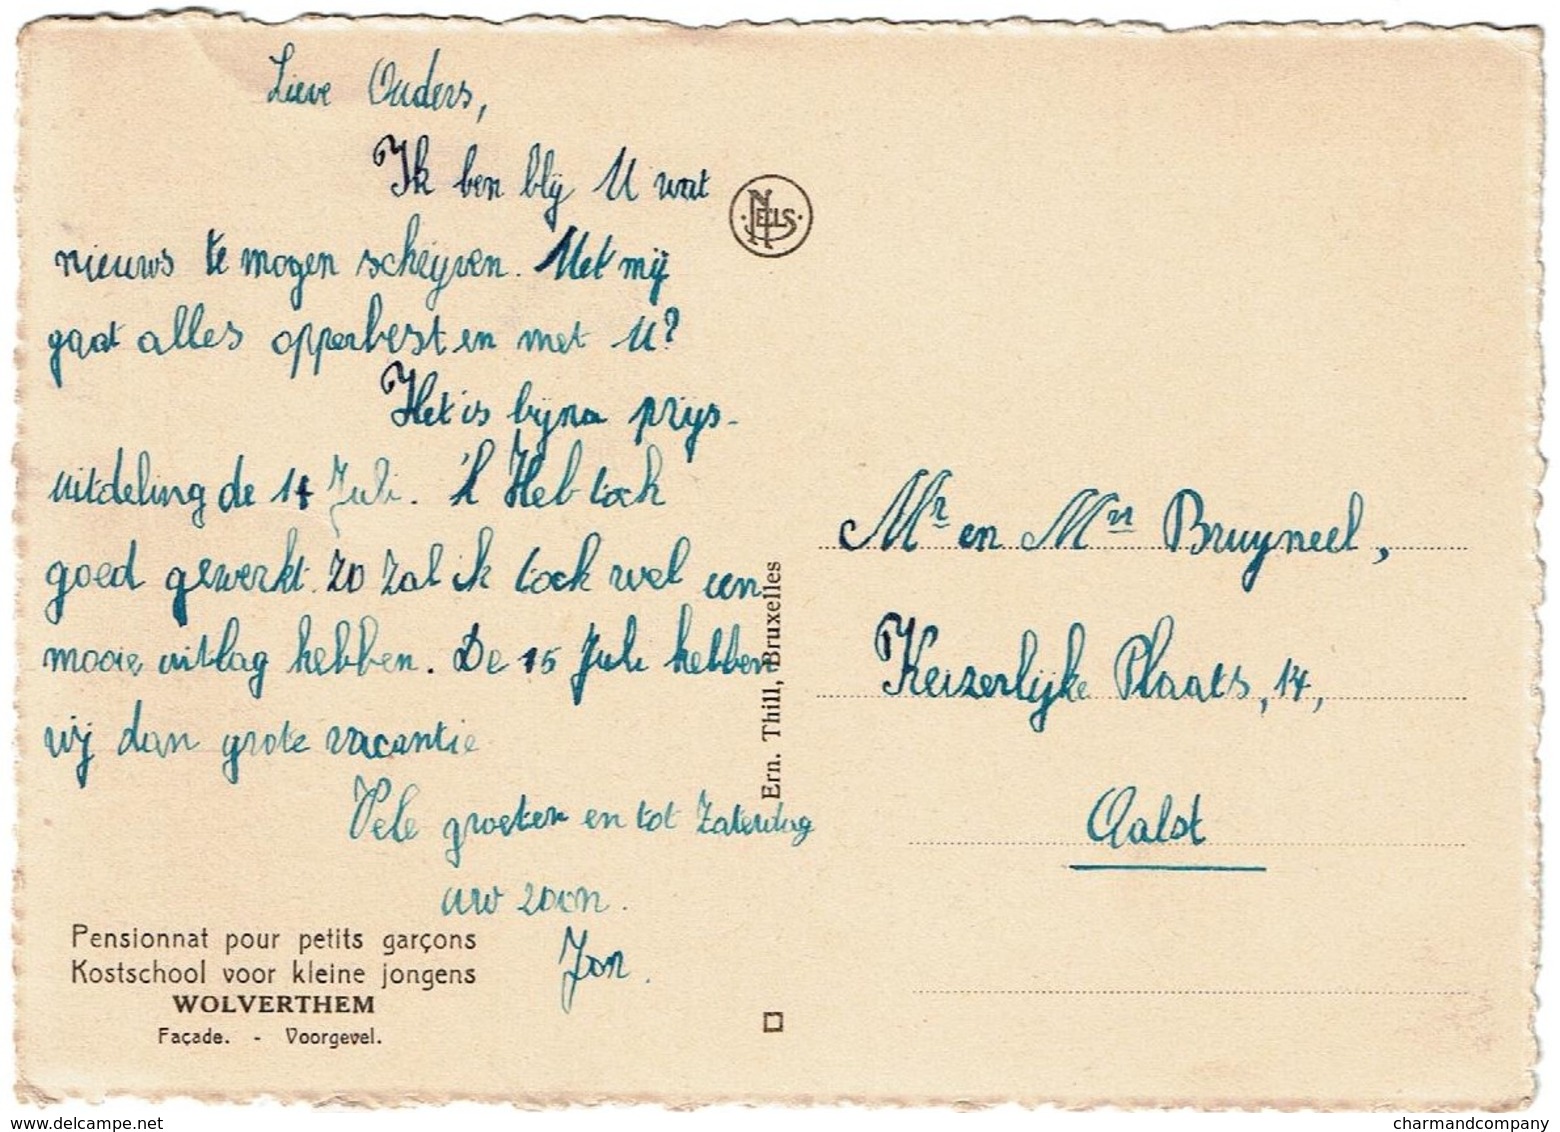 Lieve Ouders,
Ik ben blij U wat
nieuws te mogen schrijven. Met mij
gaat alles opperbest en met U?
Het is bijna prijs-
uitdeling de 14 Juli. 'k Heb toch
goed gewerkt. Zo zal ik toch wel een
mooie uitlag hebben. De 15 Juli hebben
wij dan grote vacantie
Vele groeten en tot Zaterdag
uw zoon.
Jan.
Pensionnat pour petits garçons
Kostschool voor kleine jongens
WOLVERTHEM
Façade. - Voorgevel.
NELS
Ern. Thill, Bruxelles
Mr en Mvr Bruyneel,
Keizerlijke Plaats, 14,
Aalst
www.delcampe.net
charmandcompany